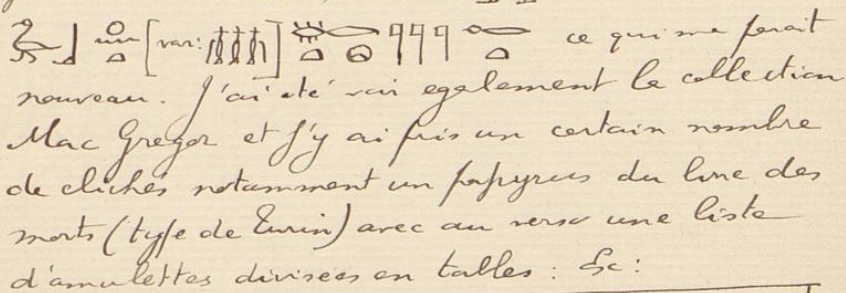 [var: ] ce qui me serait
nouveau. J'ai été voir egalement la collection
Mac Gregor et j'y ai pris un certain nombre
de clichés notamment un papyrus du livre des
morts (type de Turin) avec au verso une liste
d'amulettes divisées en tables : &c :